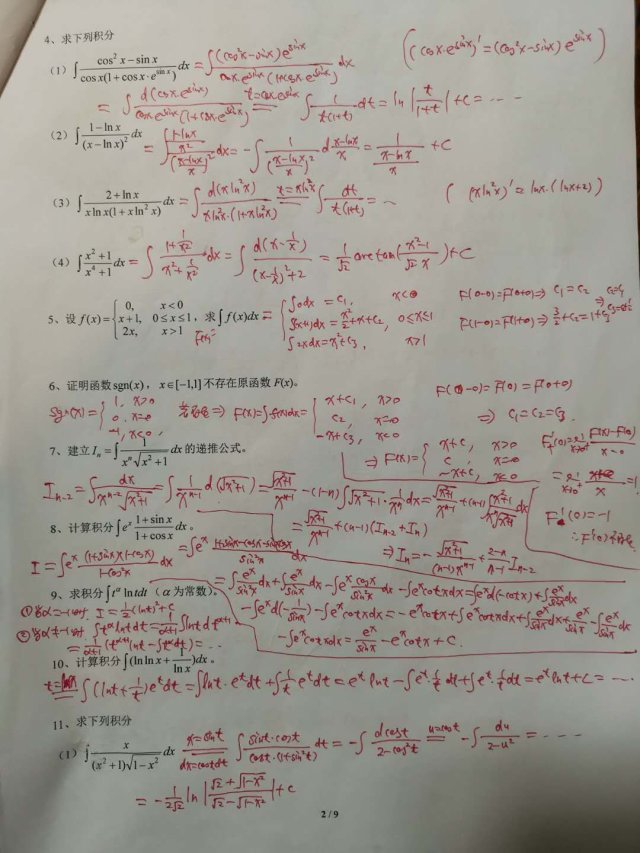 4、求下列积分
(1) ∫ (cos²x − sin x)/(cos x(1+cos x·e^{sin x})) dx = ∫ (cos²x − sinx)e^{sinx}/(cosx·e^{sinx}(1+cosx·e^{sinx})) dx ((cosx·e^{sinx})' = (cos²x − sinx)e^{sinx})
= ∫ d(cosx·e^{sinx})/(cosx·e^{sinx}(1+cosx·e^{sinx})) t=cosx·e^{sinx} = ∫ 1/(t(1+t)) dt = ln|t/(1+t)| + C = ……
(2) ∫ (1−ln x)/(x−ln x)² dx = ∫ ((1−lnx)/x²)/((x−lnx)/x)² dx = −∫ 1/((x−lnx)/x)² d (x−lnx)/x = 1/((x−lnx)/x) + C
(3) ∫ (2+ln x)/(x ln x(1+x ln²x)) dx = ∫ d(xln²x)/(xln²x·(1+xln²x)) t=xln²x = ∫ dt/(t(1+t)) = … ((xln²x)' = lnx·(lnx+2))
(4) ∫ (x²+1)/(x⁴+1) dx = ∫ (1+1/x²)/(x²+1/x²) dx = ∫ d(x−1/x)/((x−1/x)²+2) = 1/√2 arctan((x²−1)/(√2 x)) + C
5、设 f(x) = { 0, x<0; x+1, 0≤x≤1; 2x, x>1 ，求∫ f(x)dx = { ∫0dx = C₁, x<0; ∫(x+1)dx = x²/2 + x + C₂, 0≤x≤1; ∫2xdx = x² + C₃, x>1
F(0−0)=F(0+0) ⇒ C₁=C₂
F(1−0)=F(1+0) ⇒ 3/2+C₂=1+C₃
6、证明函数 sgn(x)，x∈[−1,1] 不存在原函数 F(x)。
sgn(x) = { 1, x>0; 0, x=0; −1, x<0 ⇒ F(x)=∫f(x)dx = { x+C₁, x>0; C₂, x=0; −x+C₃, x<0
F(0−0)=F(0)=F(0+0)
⇒ C₁=C₂=C₃
⇒ F(x) = { x+C, x>0; C, x=0; −x+C, x<0
F'₋(0)=−1
7、建立 Iₙ = ∫ 1/(xⁿ√(x²+1)) dx 的递推公式。
I_{n−2} = ∫ dx/(x^{n−2}√(x²+1)) = ∫ 1/x^{n−1} d(√(x²+1)) = √(x²+1)/x^{n−1} − (1−n)∫ √(x²+1)·1/xⁿ dx = √(x²+1)/x^{n−1} + (n−1)∫ (x²+1)/(xⁿ√(x²+1)) dx
= √(x²+1)/x^{n−1} + (n−1)(I_{n−2}+Iₙ)
⇒ Iₙ = −√(x²+1)/((n−1)x^{n−1}) + (2−n)/(n−1) I_{n−2}
8、计算积分∫ eˣ (1+sin x)/(1+cos x) dx。
I = ∫eˣ (1+sinx)(1−cosx)/(1−cos²x) dx = ∫eˣ (1+sinx−cosx−sinxcosx)/sin²x dx
= ∫ eˣ/sin²x dx + ∫ eˣ/sinx dx − ∫ eˣ cosx/sin²x dx − ∫eˣcotxdx = ∫eˣd(−cotx) + ∫ eˣ/sinx dx
− ∫eˣd(−1/sinx) − ∫eˣcotxdx = −eˣcotx + ∫eˣcotxdx + ∫ eˣ/sinx dx + eˣ/sinx − ∫ eˣ/sinx dx
− ∫eˣcotxdx = eˣ/sinx − eˣcotx + C.
9、求积分∫ t^α ln t dt（α 为常数）。
① 当α=−1时, I = ½(lnt)² + C
② 当α≠−1时, ∫t^α lnt dt = 1/(α+1) ∫lnt dt^{α+1}
= 1/(α+1) (t^{α+1}lnt − ∫t^α dt) = …
10、计算积分∫ (ln ln x + 1/ln x)dx。
t=lnx ∫(lnt+1/t)eᵗdt = ∫lnt·eᵗdt + ∫ 1/t eᵗdt = eᵗlnt − ∫eᵗ·1/t dt + ∫eᵗ·1/t dt = eᵗlnt + C = ……
11、求下列积分
(1) ∫ x/((x²+1)√(1−x²)) dx x=sint dx=costdt ∫ sint·cost/(cost·(1+sin²t)) dt = −∫ dcost/(2−cos²t) u=cost = −∫ du/(2−u²) = ……
= −1/(2√2) ln|(√2+√(1−x²))/(√2−√(1−x²))| + C
2 / 9